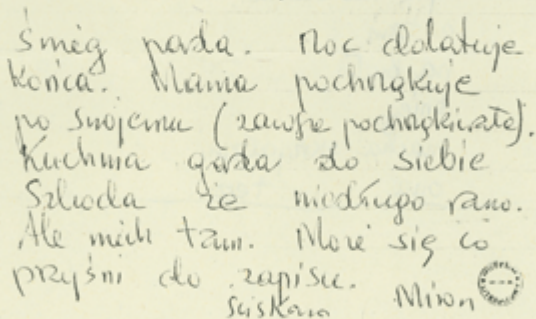 Śnieg pada. Noc dolatuje
końca. Mama pochrząkuje
po swojemu (zawsze pochrząkiwała).
Kuchnia gada do siebie
Szkoda że niedługo rano.
Ale niech tam. Może się co
przyśni do zapisu.
Ściskam Miron